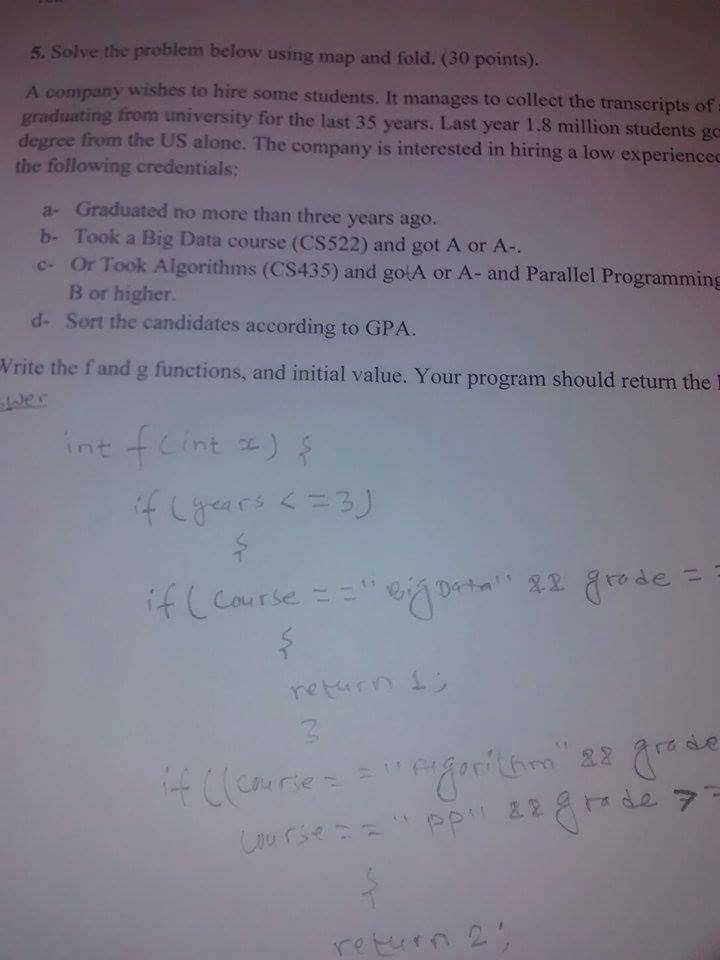 5. Solve the problem below using map and fold. (30 points).
A company wishes to hire some students. It manages to collect the transcripts of
graduating from university for the last 35 years. Last year 1.8 million students go
degree from the US alone. The company is interested in hiring a low experienced
the following credentials:
a- Graduated no more than three years ago.
b- Took a Big Data course (CS522) and got A or A-.
c- Or Took Algorithms (CS435) and got A or A- and Parallel Programming
B or higher.
d- Sort the candidates according to GPA.
Write the f and g functions, and initial value. Your program should return the
swer
int f (int x) {
if (years <= 3)
{
if (Course == "Big Data" && grade =
{
return 1;
}
if ((Course == "Algorithm" && grade
Course == "PP" && grade >=
{
return 2;